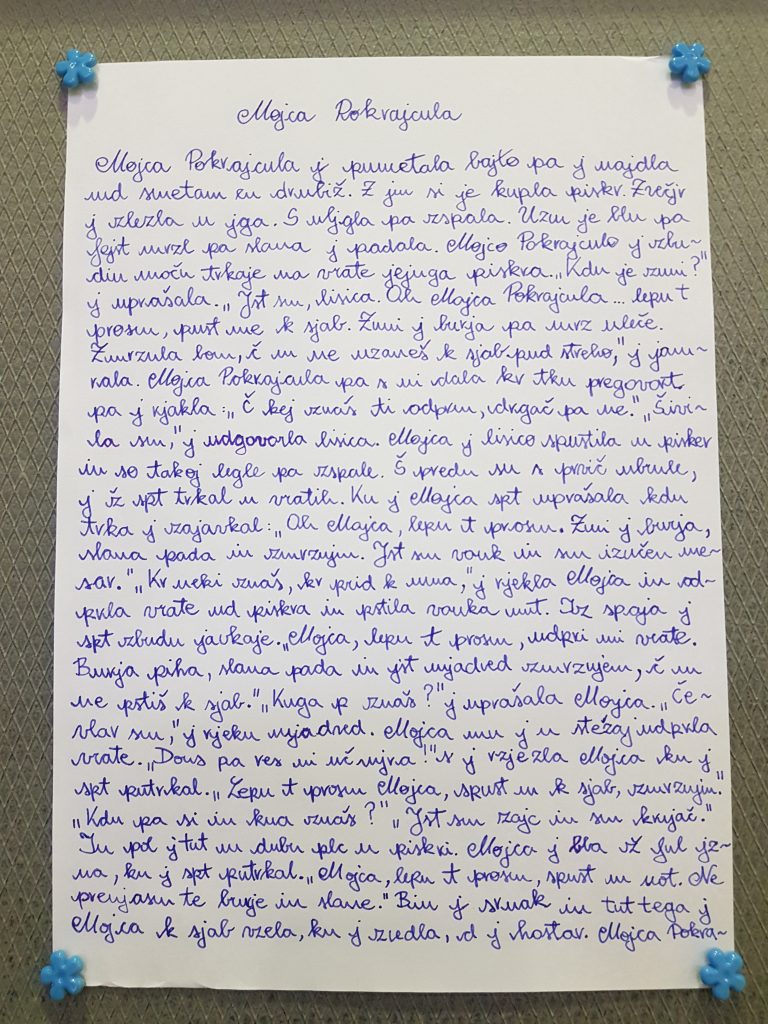 Mojca Pokrajcula
Mojca Pokrajcula j pumetala bajto pa j najdla
ud smetam en drubiž. Z jim si je kupla piskr. Zvečjr
j zlezla u jga. S uljgla pa zspala. Uzun je blu pa
fejst mrzl pa slana j padala. Mojco Pokrajculo j zbu-
diu moču trkaje na vrate jejuga piskra. „Kdu je zuni?"
j uprašala. „Jst sm, lisica. Oh Mojca Pokrajcula... lepu t
prosm, pust me k sjab. Zuni j burja pa mrz uleče.
Zmrznla bom, č m ne uzameš k sjab pud streho," j jam-
rala. Mojca Pokrajcula pa s ni dala kr tku pregovort
pa j rjakla: „Č kej znaš ti odprm, drgač pa ne." „Šivi-
la sm," j udgovorla lisica. Mojca j lisico spustila u pisker
in so takoj legle pa zspale. Š predn su s prvič ubrnle,
j iž spt trkal u vratih. Ku j Mojca spt uprašala kdu
trka j zajavkal: „Oh Mojca, lepu t prosm. Zuni j burja,
slana pada in zmrzujm. Jst sm vouk in sm izučen me-
sar." „Kr neki znaš, kr prid k nma," j rjekla Mojca in od-
prla vrate ud piskra in pstila vouka nut. Iz spaja j
spt zbudu javkaje. „Mojca, lepu t prosm, udpri mi vrate.
Burja piha, slana pada in jst mjadved zmrzujem, č m
ne pstiš k sjab." „Kuga p znaš?" j uprašala Mojca. „Če-
vlar sm," j rjeku mjadved. Mojca mu j u stežaj udprla
vrate. „Dons pa res ni učmjra!" s j rzjezla Mojca ku j
spt putrkal. „Lepu t prosm Mojca, spust m k sjab, zmrzujm."
„Kdu pa si in kua znaš?" „Jst sm zajc in sm krujač."
In pol j tut on dubu plc u piskri. Mojca j bla vž ful jz-
na, ku j spt putrkal. „Mojca, lepu t prosm, spust m not. Ne
prenjasm te burje in slane." Biu j srnak in tut tega j
Mojca k sjab vzela, ku j zvedla, d j hostar. Mojca Pokra-